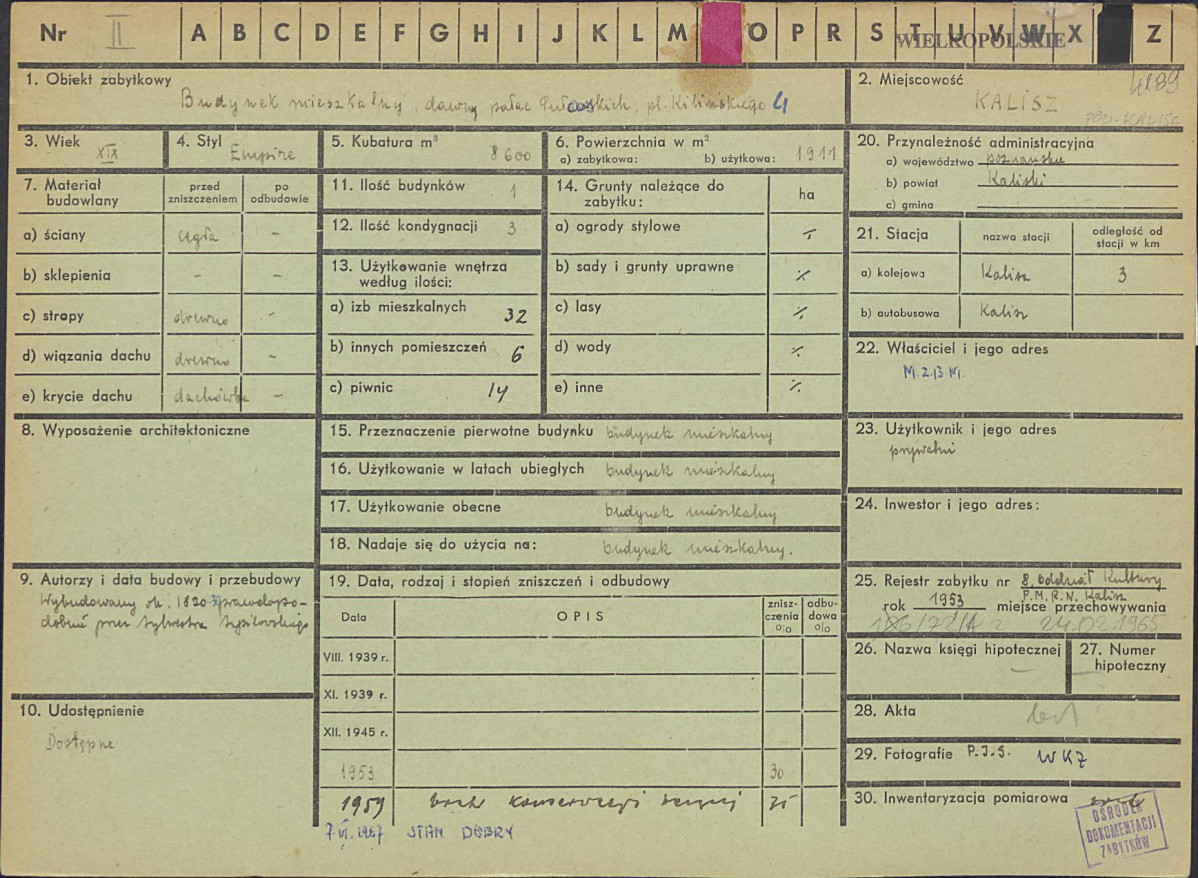 Nr II A B C D E F G H I J K L M O P R S T U V W X Z
WIELKOPOLSKIE
4189
1. Obiekt zabytkowy
Budynek mieszkalny, dawny pałac Puławskich, pl. Kilińskiego 4
2. Miejscowość
KALISZ
POW. KALISZ
3. Wiek XIX
4. Styl Empire
5. Kubatura m³ 8600
6. Powierzchnia w m²
a) zabytkowa: b) użytkowa: 1911
7. Materiał budowlany
przed zniszczeniem
po odbudowie
a) ściany cegła -
b) sklepienia - -
c) stropy drewno -
d) wiązania dachu drewno -
e) krycie dachu dachówka -
8. Wyposażenie architektoniczne
9. Autorzy i data budowy i przebudowy
Wybudowany ok. 1820 prawdopo-
dobnie przez Sylwestra Szpilowskiego
10. Udostępnienie
Dostępne
11. Ilość budynków 1
12. Ilość kondygnacji 3
13. Użytkowanie wnętrza
według ilości:
a) izb mieszkalnych 32
b) innych pomieszczeń 6
c) piwnic 14
14. Grunty należące do
zabytku:
ha
a) ogrody stylowe ./.
b) sady i grunty uprawne ./.
c) lasy ./.
d) wody ./.
e) inne ./.
15. Przeznaczenie pierwotne budynku budynek mieszkalny
16. Użytkowanie w latach ubiegłych budynek mieszkalny
17. Użytkowanie obecne budynek mieszkalny
18. Nadaje się do użycia na: budynek mieszkalny.
19. Data, rodzaj i stopień zniszczeń i odbudowy
Data OPIS znisz-czenia % odbu-dowa %
VIII. 1939 r.
XI. 1939 r.
XII. 1945 r.
1953 30
1959 brak konserwacji 35
7.VI.1967 STAN DOBRY
20. Przynależność administracyjna
a) województwo poznańskie
b) powiat Kaliski
c) gmina
21. Stacja
nazwa stacji
odległość od
stacji w km
a) kolejowa Kalisz 3
b) autobusowa Kalisz
22. Właściciel i jego adres
M.Z.B.M.
23. Użytkownik i jego adres
prywatni
24. Inwestor i jego adres:
25. Rejestr zabytku nr 8, Oddział Kultury
P.M.R.N. Kalisz
rok 1953 miejsce przechowywania
24.02.1965
26. Nazwa księgi hipotecznej -
27. Numer
hipoteczny -
28. Akta
29. Fotografie P.I.S. WKZ
30. Inwentaryzacja pomiarowa
OŚRODEK
DOKUMENTACJI
ZABYTKÓW